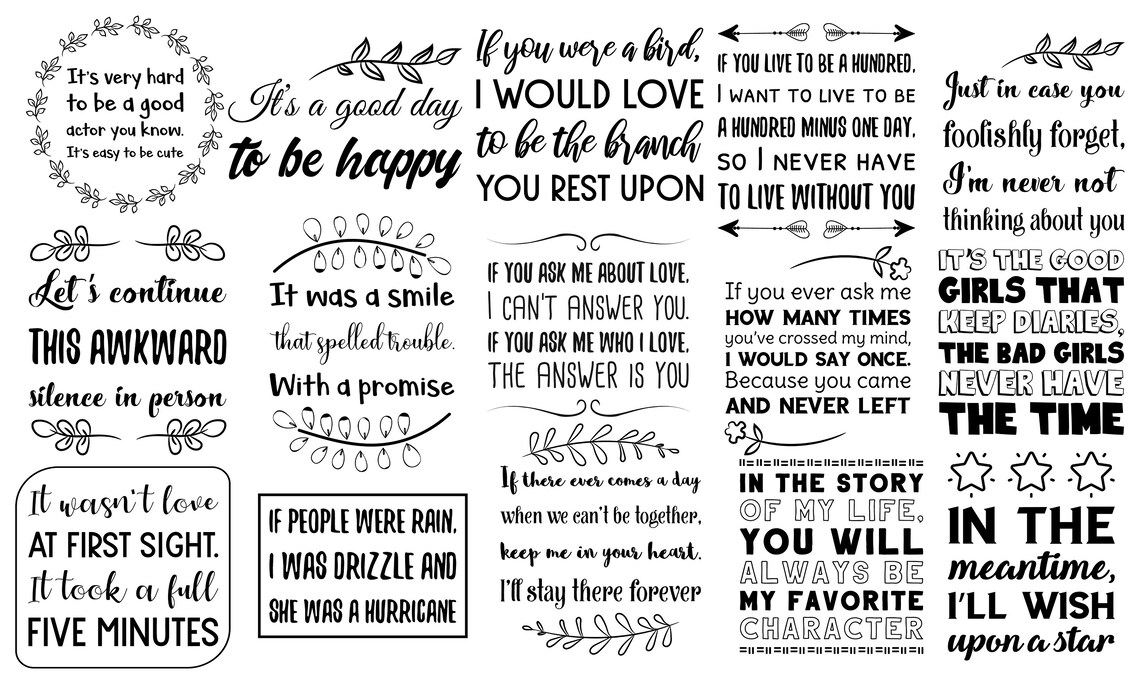 It's very hard
to be a good
actor you know.
It's easy to be cute
It's a good day
to be happy
If you were a bird,
I WOULD LOVE
to be the branch
YOU REST UPON
IF YOU LIVE TO BE A HUNDRED,
I WANT TO LIVE TO BE
A HUNDRED MINUS ONE DAY,
SO I NEVER HAVE
TO LIVE WITHOUT YOU
Just in case you
foolishly forget,
I'm never not
thinking about you
Let's continue
THIS AWKWARD
silence in person
It was a smile
that spelled trouble.
With a promise
IF YOU ASK ME ABOUT LOVE,
I CAN'T ANSWER YOU.
IF YOU ASK ME WHO I LOVE,
THE ANSWER IS YOU
If you ever ask me
HOW MANY TIMES
you've crossed my mind,
I WOULD SAY ONCE.
Because you came
AND NEVER LEFT
IT'S THE GOOD
GIRLS THAT
KEEP DIARIES,
THE BAD GIRLS
NEVER HAVE
THE TIME
It wasn't love
AT FIRST SIGHT.
It took a full
FIVE MINUTES
IF PEOPLE WERE RAIN,
I WAS DRIZZLE AND
SHE WAS A HURRICANE
If there ever comes a day
when we can't be together,
keep me in your heart.
I'll stay there forever
IN THE STORY
OF MY LIFE,
YOU WILL
ALWAYS BE
MY FAVORITE
CHARACTER
IN THE
meantime,
I'LL WISH
upon a star